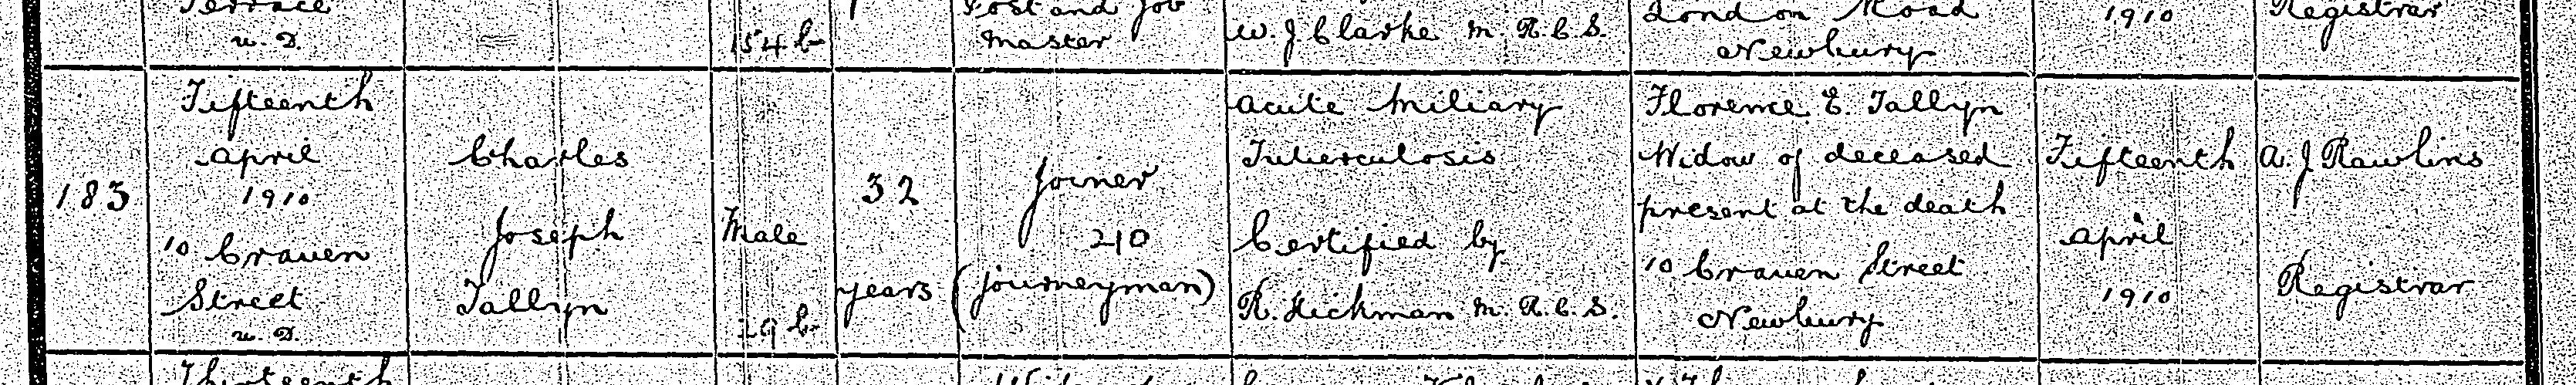 Terrace
u. D.
154 b
Post and Job
Master
W. J Clarke M. R. C. S.
London Road
Newbury
1910
Registrar
183
Fifteenth
April
1910
10 Craven
Street
u. D.
Charles
Joseph
Tallyn
Male
29 b
32
years
Joiner
210
(journeyman)
Acute Miliary
Tuberculosis
Certified by
R. Hickman M. R. C. S.
Florence E. Tallyn
Widow of deceased
present at the death
10 Craven Street
Newbury
Fifteenth
April
1910
A. J Rawlins
Registrar
Thirteenth